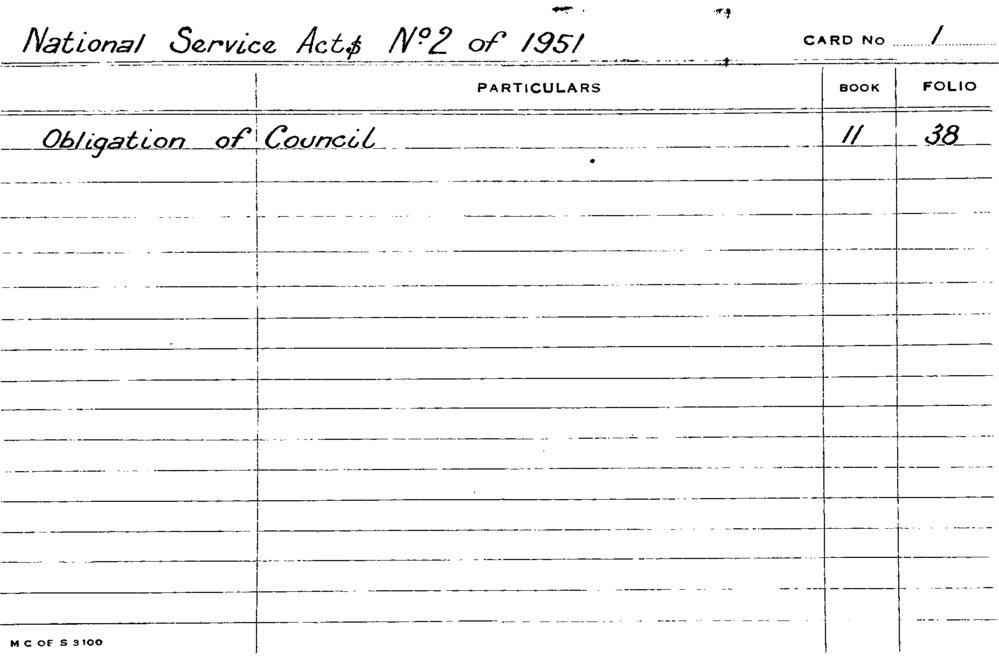 National Service Acts Nº2 of 1951 CARD No 1
PARTICULARS BOOK FOLIO
Obligation of Council 11 38
M C OF S 3100